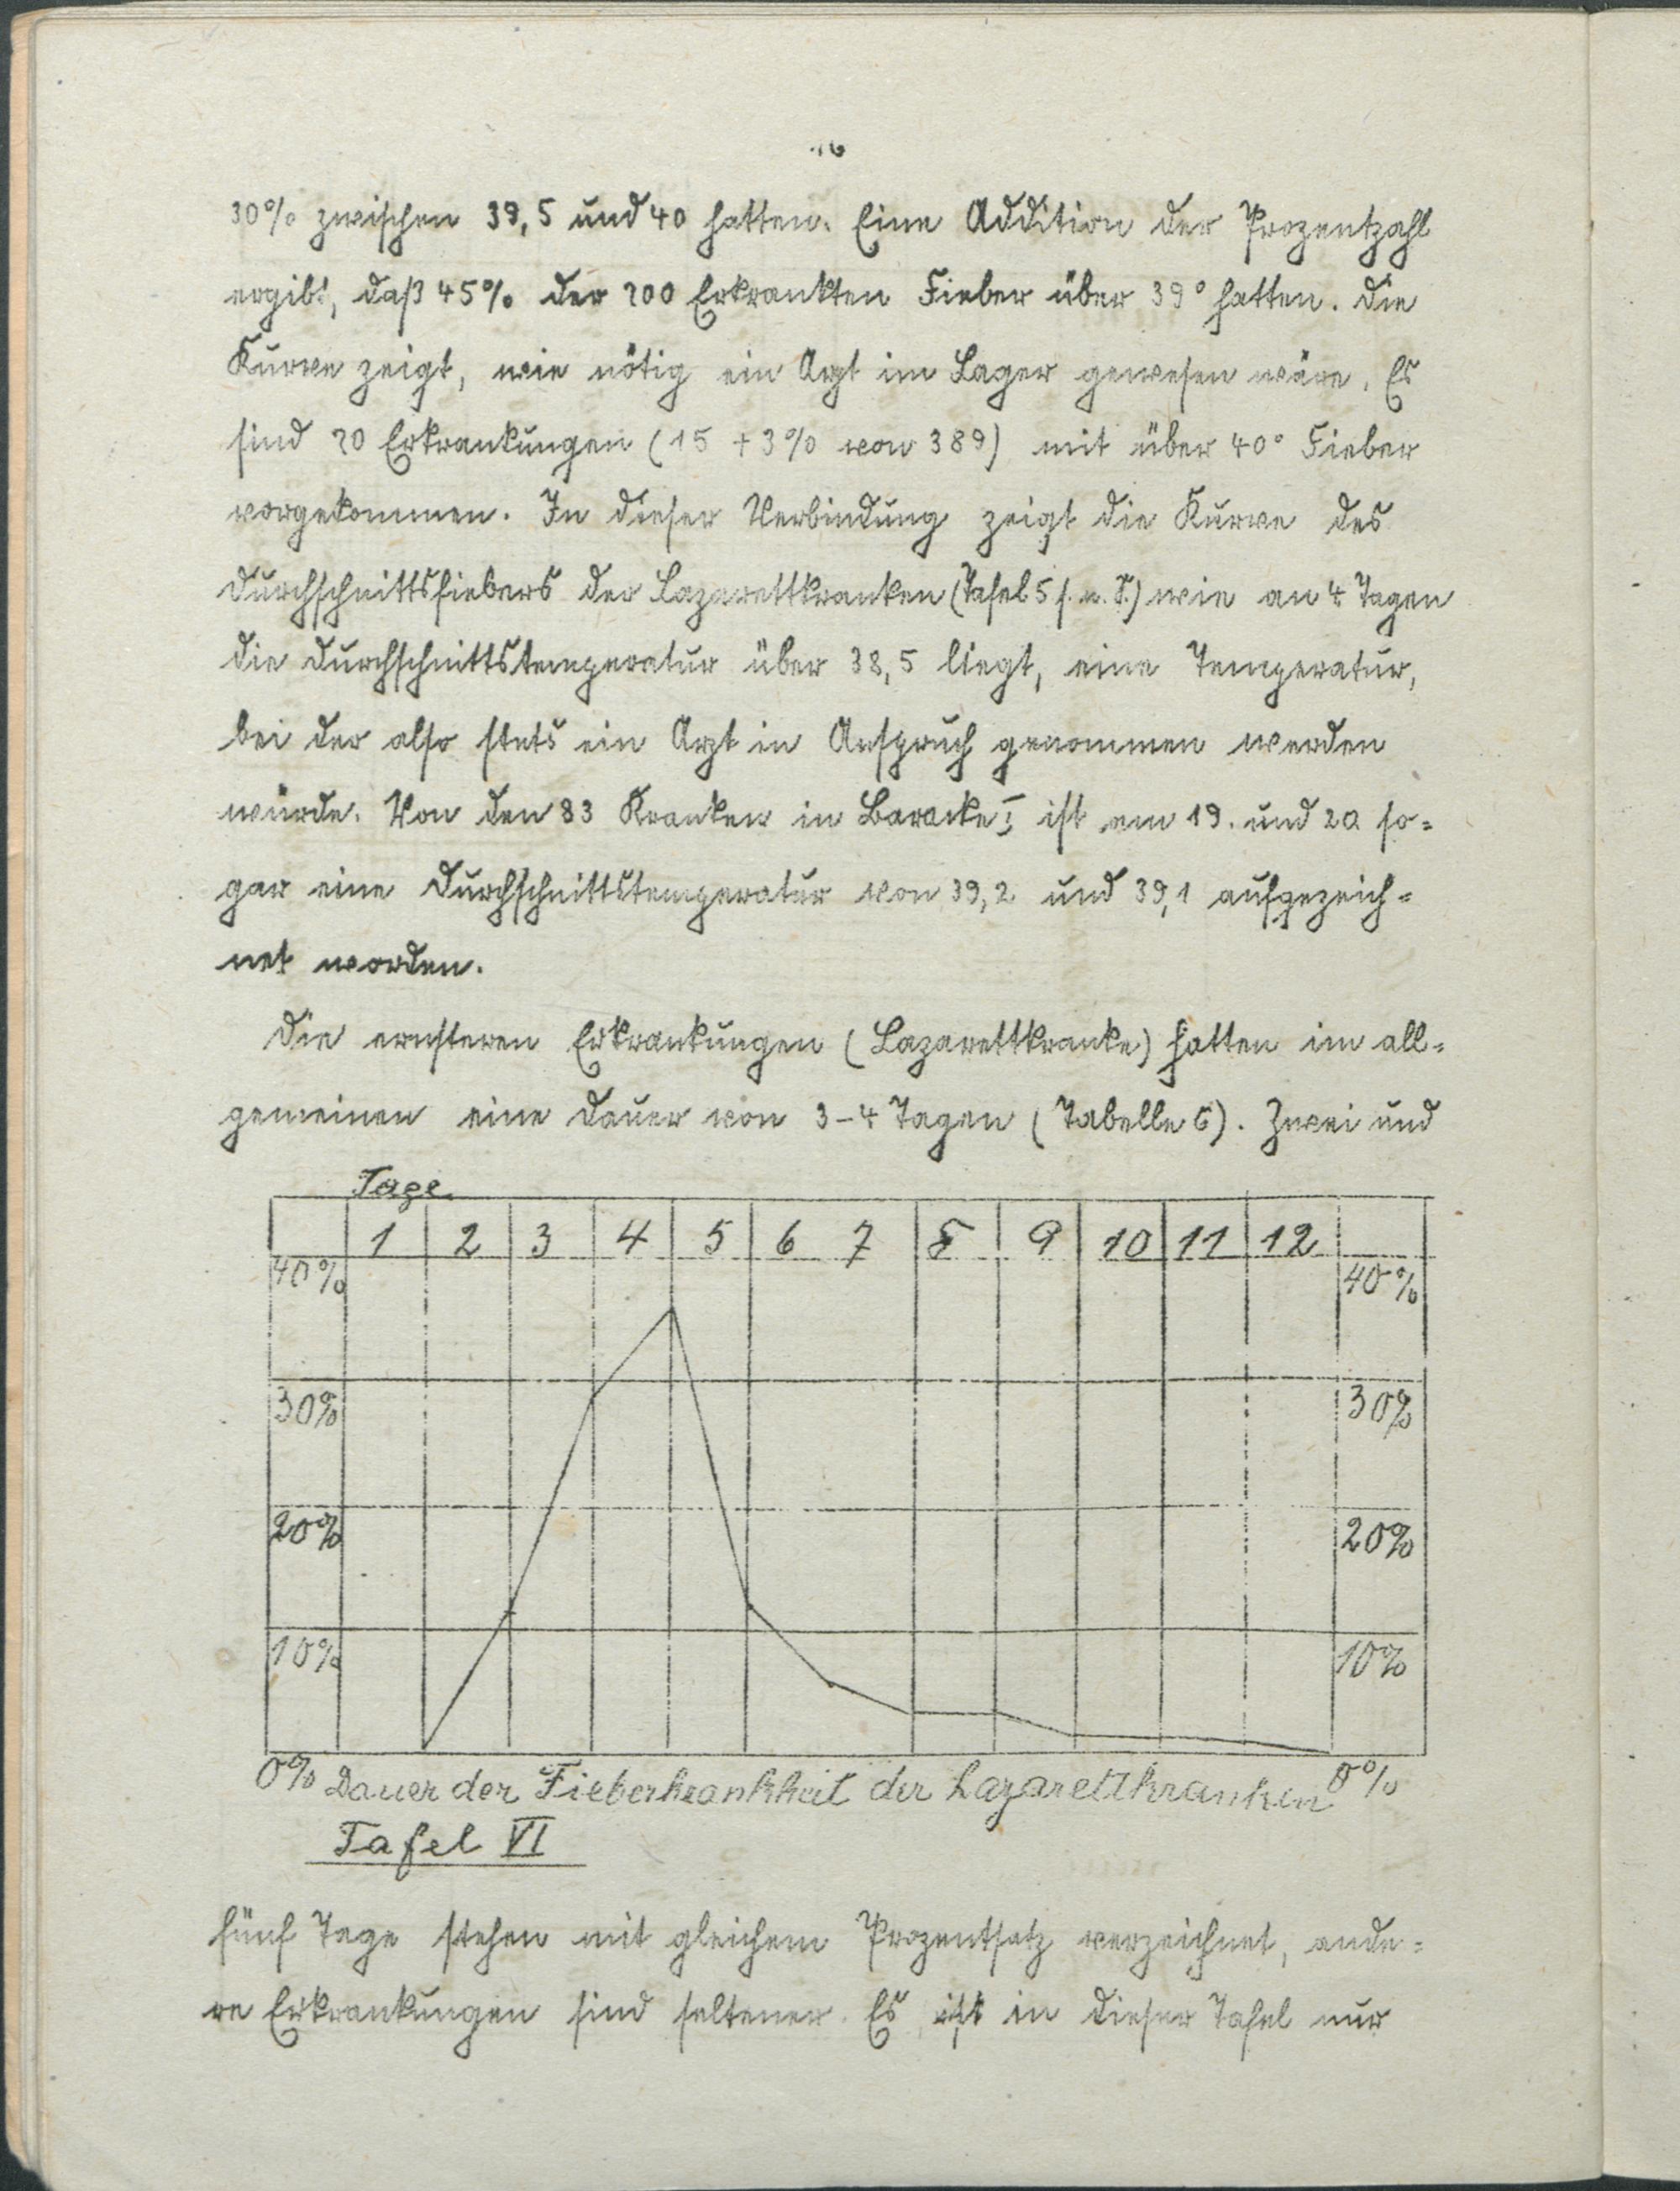 16
30% zwischen 39,5 und 40 hatten. Eine Addition der Prozentzahl
ergibt, daß 45% der 200 Erkrankten Fieber über 39° hatten. Die
Kurve zeigt, wie nötig ein Arzt im Lager gewesen wäre. Es
sind 20 Erkrankungen (15 + 3% von 389) mit über 40° Fieber
vorgekommen. In dieser Verbindung zeigt die Kurve des
Durchschnittsfiebers der Lazarettkranken (Tafel 5 s. n. S.) wie an 4 Tagen
die Durchschnittstemperatur über 38,5 liegt, eine Temperatur,
bei der also stets ein Arzt in Anspruch genommen werden
würde. Von den 83 Kranken in Baracke I ist am 19. und 20 so=
gar eine Durchschnittstemperatur von 39,2 und 39,1 aufgezeich=
net worden.
Die ernsteren Erkrankungen (Lazarettkranke) hatten im all=
gemeinen eine Dauer von 3-4 Tagen (Tabelle 6). Zwei und
Tage
1 2 3 4 5 6 7 8 9 10 11 12
40% 40%
30% 30%
20% 20%
10% 10%
0% Dauer der Fieberkrankheit der Lazarettkranken 0%
Tafel VI
fünf Tage stehen mit gleichem Prozentsatz verzeichnet, ande=
re Erkrankungen sind seltener. Es ist in dieser Tafel nur